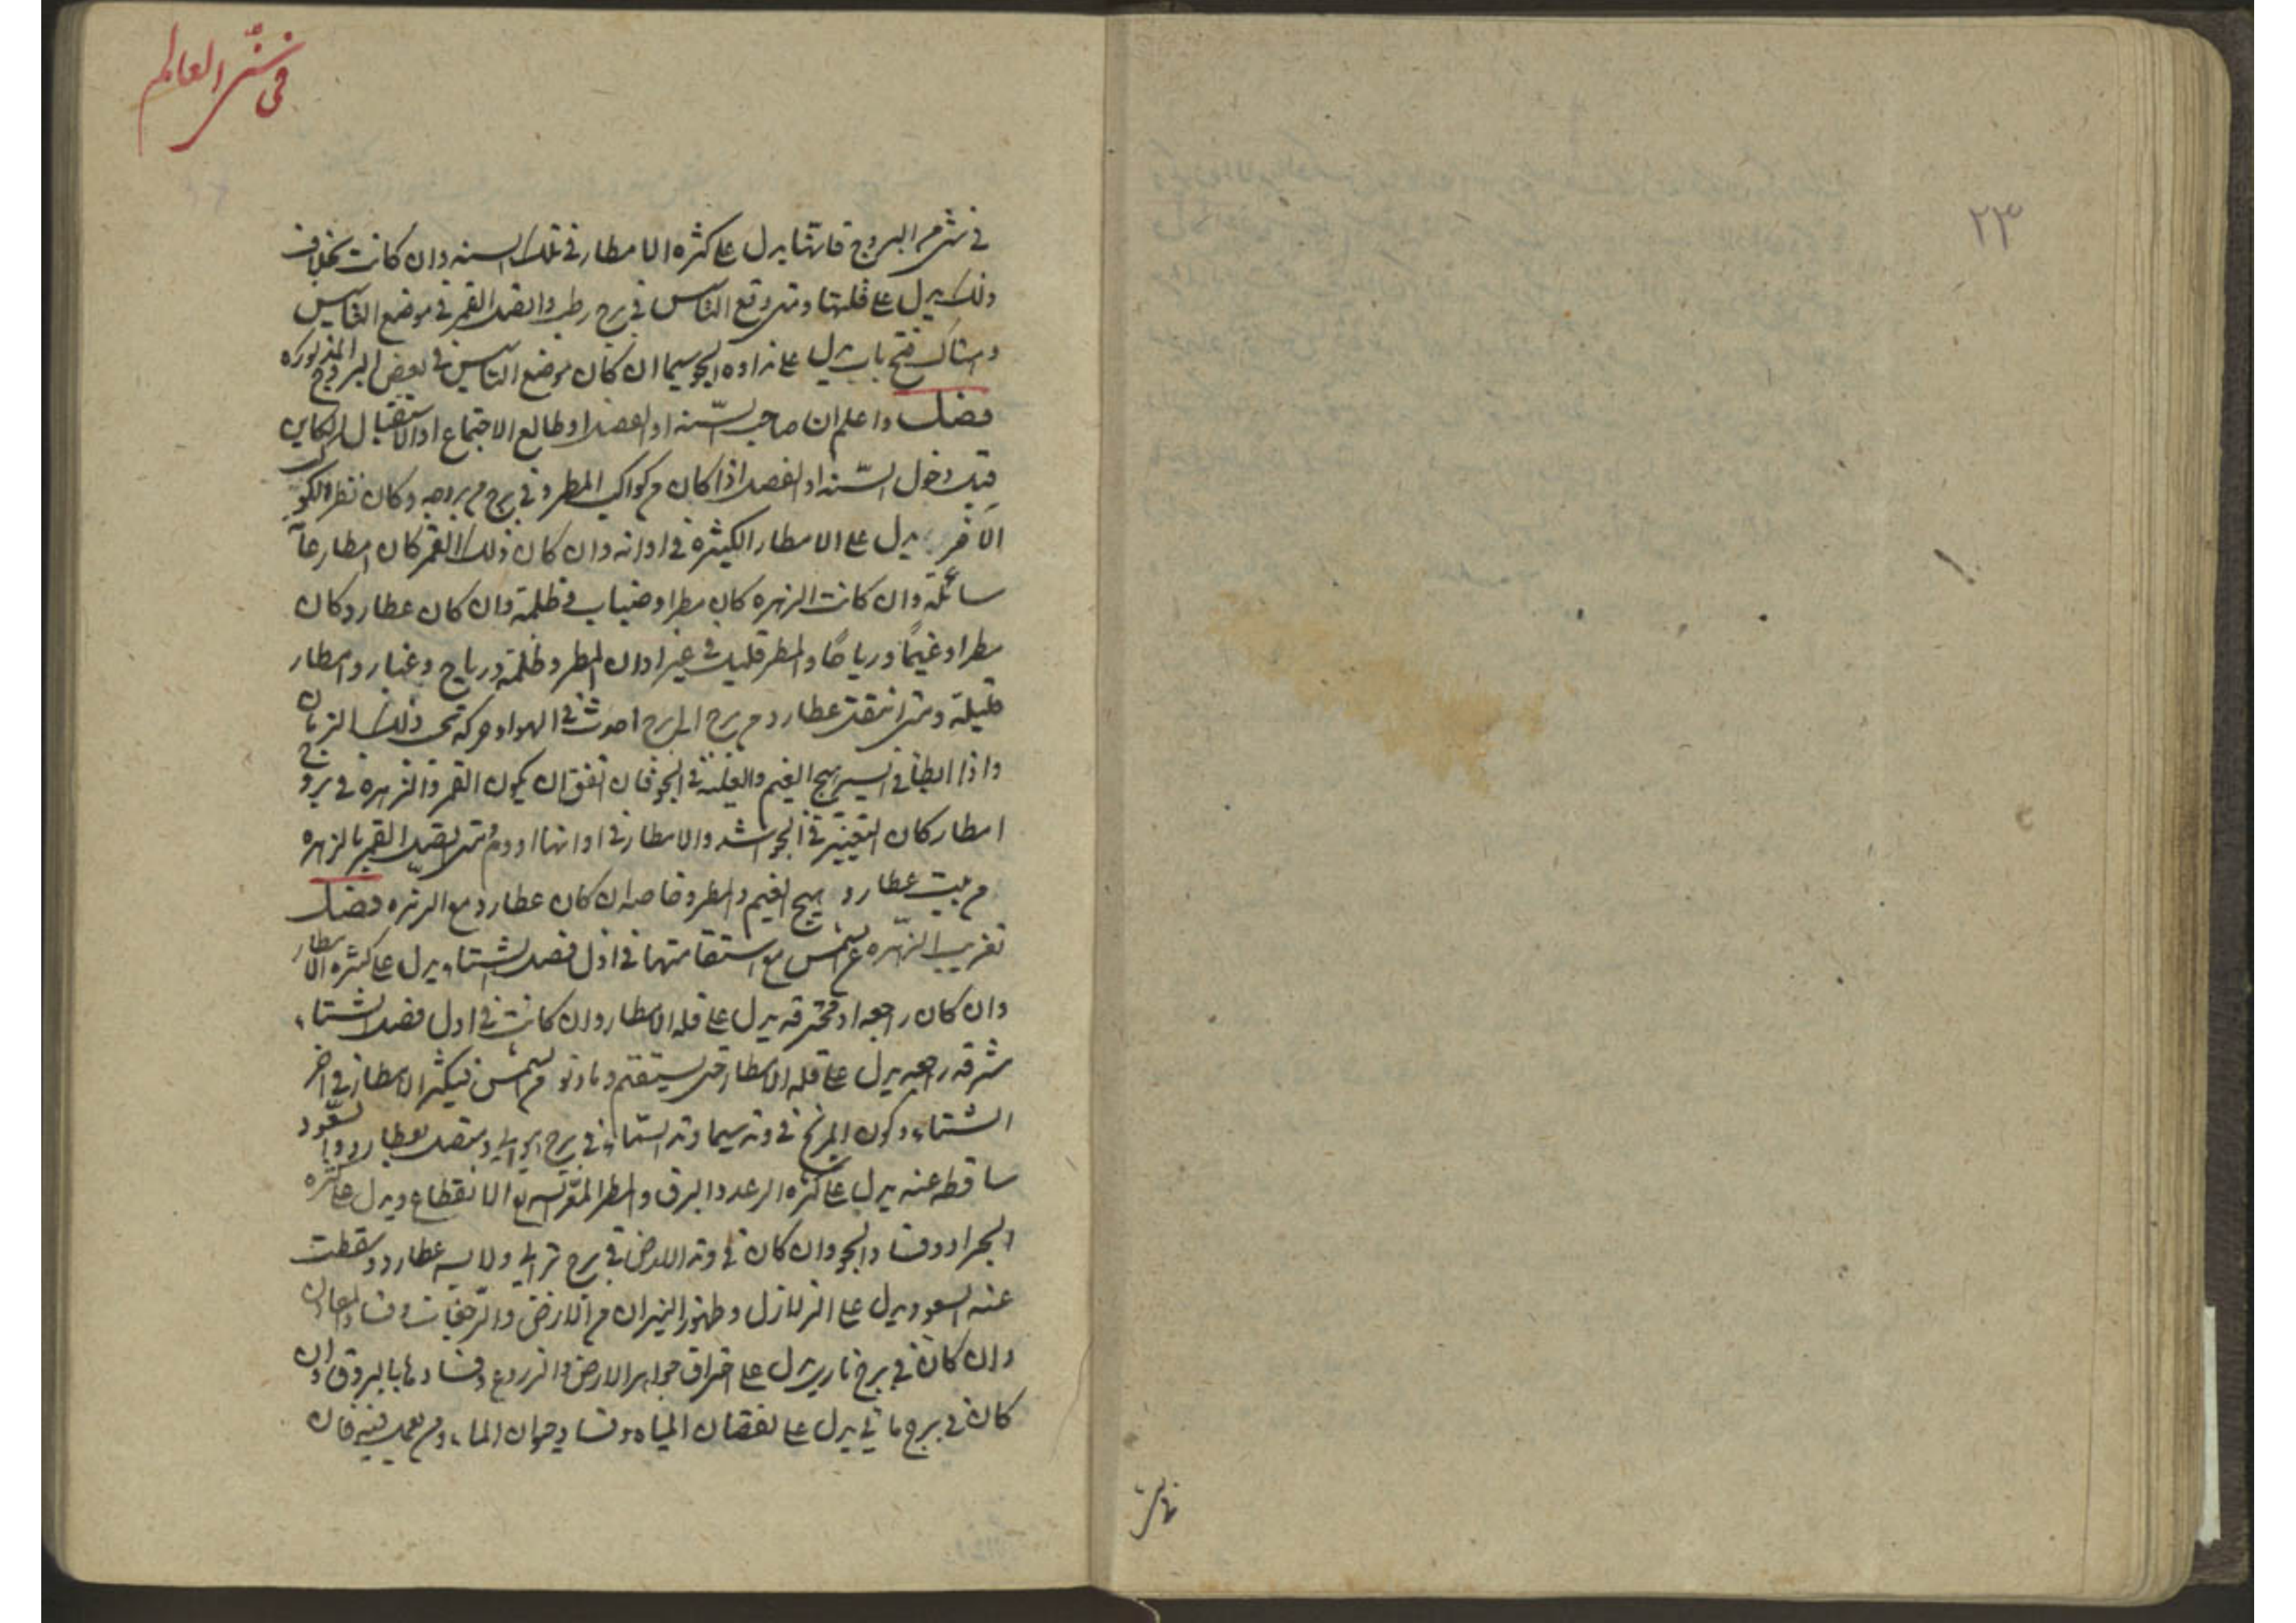 ٢٣
فى سنى العالم
فى شئ من البروج فانها يدل على كثره الامطار فى تلك السنه وان كانت بخلاف
ذلك يدل على قلتها ومتى وقع التاسيس فى برج رطب واتصل القمر فى موضع التاسيس
وهناك فتح باب يدل على نداوه الجو سيما ان كان موضع التاسيس فى بعض البروج المذكوره
فصل واعلم ان صاحب السّنه او الفصل او طالع الاجتماع او الاستقبال الكاين
قبل دخول السّنه او الفصل اذا كان من كواكب المطر وفى برج من بروجه وكان نظره لكوكب
الآخر يدل على الامطار الكثيره فى اوانه وان كان ذلك القمر كان امطار عآ
سائلة وان كانت الزهره كان مطرا وضباب فى ظلمة وان كان عطارد كان
مطرا وغيمًا ورياحًا والمطر قليل فى غير اوان المطر وظلمة ورياح وغبار وامطار
قليلة ومتى انتقل عطارد من برج الى برج احدث فى الهواء حركة فى ذلك الزمان
واذا ابطأ فى السير يهيج الغيم والغلظة فى الجو فان اتفق ان يكون القمر والزهرة فى بروج
امطار كان التغيّر فى الجو اشد والامطار فى اوانها ادوم ومتى اتصل القمر بالزهره
من بيت عطارد يهيج الغيم والمطر وخاصه ان كان عطارد مع الزهره فصل
تغريب الزّهره عن الشمس مع استقامتها فى اول فصل الشتاء يدل على كثره الامطار
وان كان راجعه او محترقه يدل على قله الامطار وان كانت فى اول فصل الشتاء
مشرقه راجعه يدل على قله الامطار حتى يستقيم وتدنو من الشمس فيكثر الامطار فى اخر
الشتاء وكون المريخ فى وتد سيما وتد السّماء فى برج هوائى ومتصل بعطارد والسّعود
ساقطه عنه يدل على كثره الرعد والبرق والمطر السريع الانقطاع ويدل على كثره
الجراد وفساد الجو وان كان فى وتد الارض فى برج ترابى ولابسه عطارد وسقطت
عنه السعود يدل على الزلازل وظهور النيران من الارض والرّجفات وفساد المعادن
وان كان فى برج نارى يدل على احتراق جواهر الارض والزروع وفسادها بالبروق وان
كان فى برج مائى يدل على نقصان المياه وفساد حيوان الماء ومن يعمل فيه فان